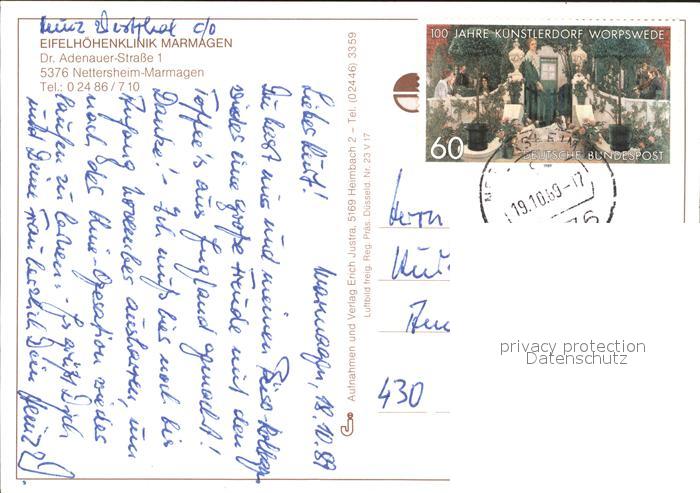 Heinz Berthol c/o
EIFELHÖHENKLINIK MARMAGEN
Dr. Adenauer-Straße 1
5376 Nettersheim-Marmagen
Tel.: 0 24 86 / 7 10
Marmagen, 18.10.89
Liebes
Du hast uns und meinen
wieder eine große Freude mit den
Toffee's aus England gemacht!
Danke! - Ich muß hier noch bis
Anfang November ausharren, um
nach der Operation wieder
laufen zu lernen. - Es grüßt Dich
und Deine Frau herzlich Dein Heinz
Aufnahmen und Verlag Erich Justra, 5169 Heimbach 2 – Tel. (02446) 3359
Luftbild freig. Reg. Präs. Düsseld. Nr. 23 V 17
100 JAHRE KÜNSTLERDORF WORPSWEDE
60
DEUTSCHE BUNDESPOST
1989
19.10.89-17
Herrn
430
privacy protection
Datenschutz